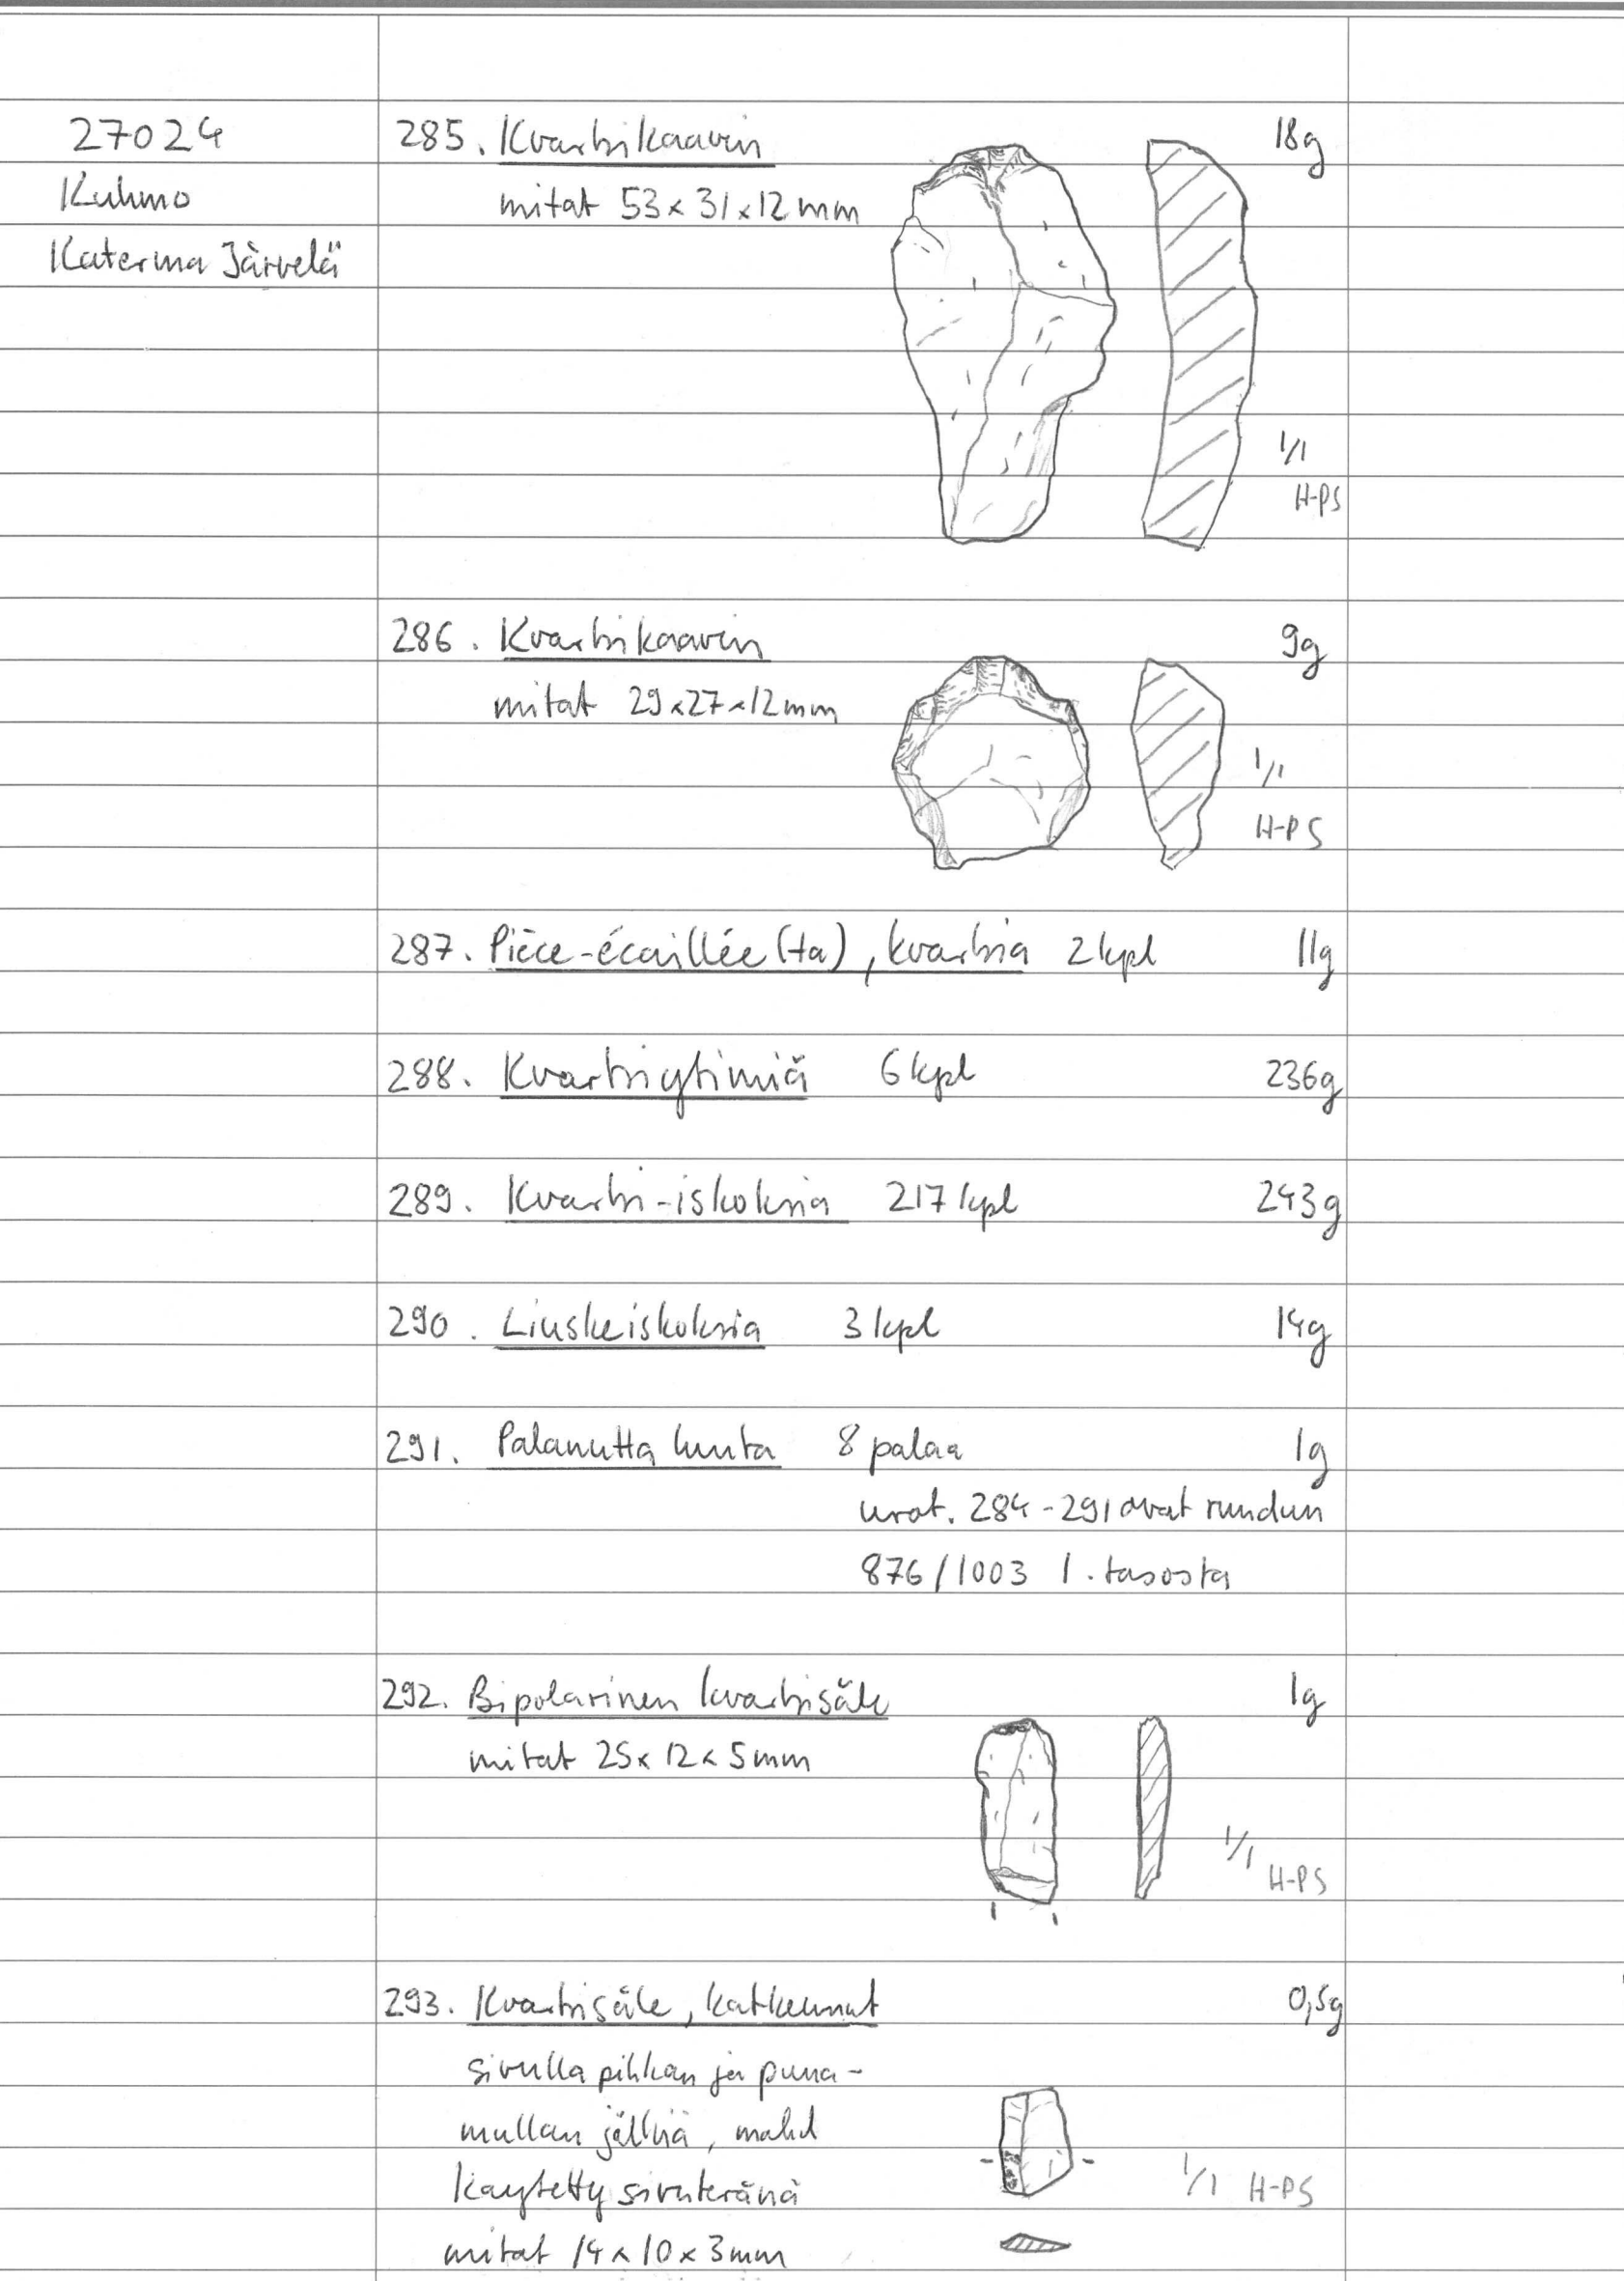 27024
Kuhmo
Katerma Järvelä
285. Kvartsikaavin 18g
mitat 53x31x12mm
1/1
H-PS
286. Kvartsikaavin 9g
mitat 29x27x12mm
1/1
H-PS
287. Pièce-écaillée(ta), kvartsia 2kpl 11g
288. Kvartsiytimiä 6kpl 236g
289. Kvartsi-iskoksia 217kpl 243g
290. Liuskeiskoksia 3kpl 14g
291. Palanutta luuta 8 palaa 1g
nrot. 284-291 ovat ruudun
876/1003 1. tasosta
292. Bipolarinen kvartsisäle 1g
mitat 25x12x5mm
1/1
H-PS
293. Kvartsisäle, katkennut 0,5g
sivulla pihkan ja puna-
mullan jälkiä, mahd
käytetty sivuteränä
1/1 H-PS
mitat 14x10x3mm